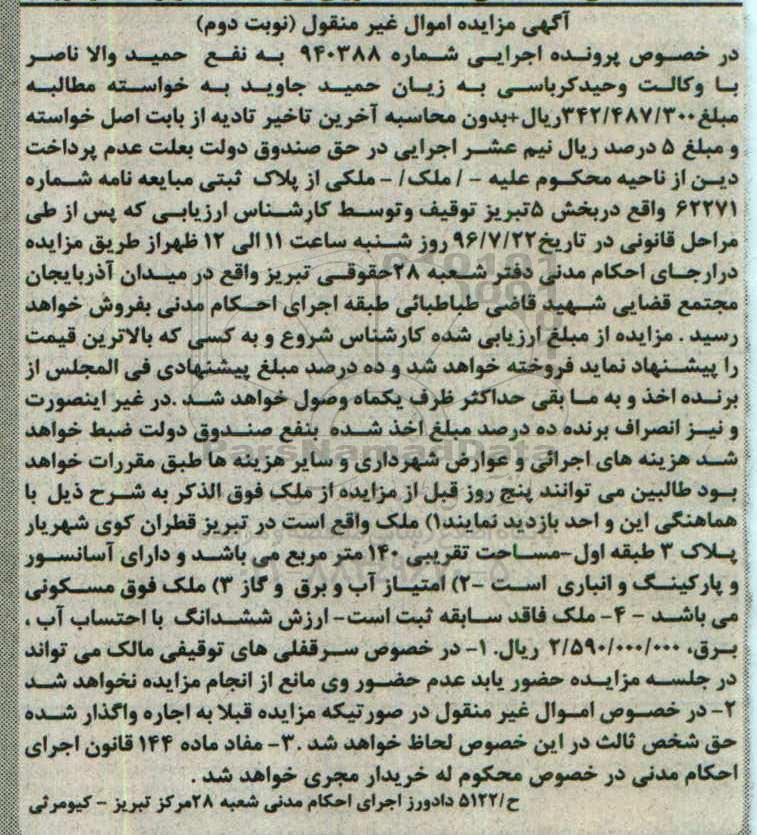 آگهی مزایده اموال غیر منقول (نوبت دوم)
در خصوص پرونده اجرایی شماره ۹۴۰۳۸۸ به نفع حمید والا ناصر
با وکالت وحیدکرباسی به زیان حمید جاوید به خواسته مطالبه
مبلغ۳۴۲/۴۸۷/۳۰۰ریال+بدون محاسبه آخرین تاخیر تادیه از بابت اصل خواسته
و مبلغ ۵ درصد ریال نیم عشر اجرایی در حق صندوق دولت بعلت عدم پرداخت
دین از ناحیه محکوم علیه - / ملک/ - ملکی از پلاک ثبتی مبایعه نامه شماره
۶۲۲۷۱ واقع دربخش ۵تبریز توقیف وتوسط کارشناس ارزیابی که پس از طی
مراحل قانونی در تاریخ۹۶/۷/۲۲ روز شنبه ساعت ۱۱ الی ۱۲ ظهراز طریق مزایده
درارجای احکام مدنی دفتر شعبه ۲۸حقوقی تبریز واقع در میدان آذربایجان
مجتمع قضایی شهید قاضی طباطبائی طبقه اجرای احکام مدنی بفروش خواهد
رسید . مزایده از مبلغ ارزیابی شده کارشناس شروع و به کسی که بالاترین قیمت
را پیشنهاد نماید فروخته خواهد شد و ده درصد مبلغ پیشنهادی فی المجلس از
برنده اخذ و به ما بقی حداکثر ظرف یکماه وصول خواهد شد .در غیر اینصورت
و نیز انصراف برنده ده درصد مبلغ اخذ شده بنفع صندوق دولت ضبط خواهد
شد هزینه های اجرائی و عوارض شهرداری و سایر هزینه ها طبق مقررات خواهد
بود طالبین می توانند پنج روز قبل از مزایده از ملک فوق الذکر به شرح ذیل با
هماهنگی این و احد بازدید نمایند۱) ملک واقع است در تبریز قطران کوی شهریار
پلاک ۳ طبقه اول-مساحت تقریبی ۱۴۰ متر مربع می باشد و دارای آسانسور
و پارکینگ و انباری است -۲) امتیاز آب و برق و گاز ۳) ملک فوق مسکونی
می باشد - ۴- ملک فاقد سابقه ثبت است- ارزش ششدانگ با احتساب آب ،
برق، ۲/۵۹۰/۰۰۰/۰۰۰ ریال. ۱- در خصوص سرقفلی های توقیفی مالک می تواند
در جلسه مزایده حضور یابد عدم حضور وی مانع از انجام مزایده نخواهد شد
۲- در خصوص اموال غیر منقول در صورتیکه مزایده قبلا به اجاره واگذار شده
حق شخص ثالث در این خصوص لحاظ خواهد شد .۳- مفاد ماده ۱۴۴ قانون اجرای
احکام مدنی در خصوص محکوم له خریدار مجری خواهد شد .
ح/۵۱۲۲ دادورز اجرای احکام مدنی شعبه ۲۸مرکز تبریز - کیومرثی